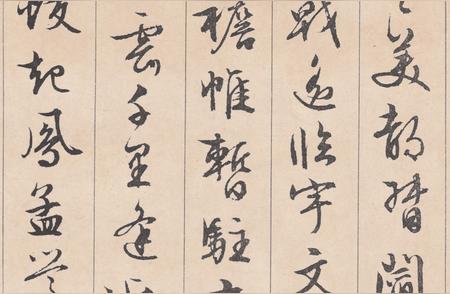 之美都督閻
戟遙臨宇文
襜帷暫駐
雲千里逢
蛟起鳳孟學